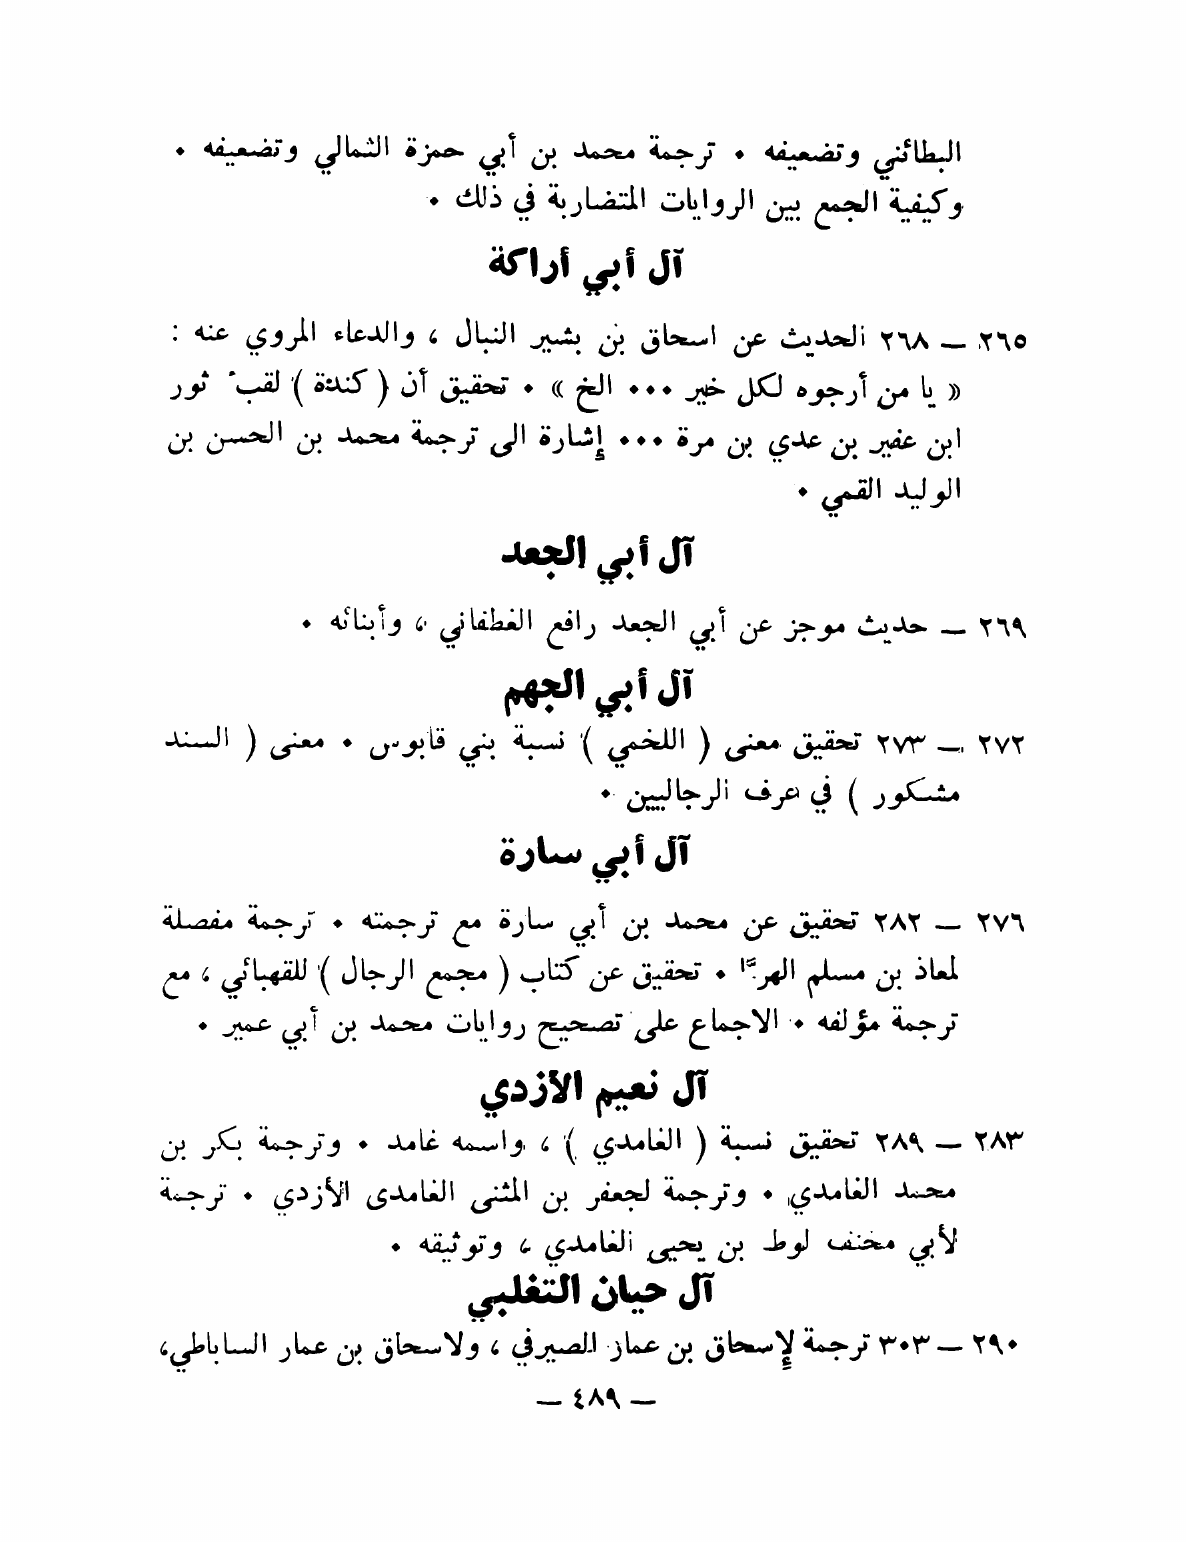 البطائني وتضعيفه . ترجمة محمد بن أبي حمزة الثمالي وتضعيفه .
وكيفية الجمع بين الروايات المتضاربة في ذلك .
آل أبي أراكة
٢٦٥ — ٢٦٨ الحديث عن اسحاق بن بشير النبال ، والدعاء المروي عنه :
« يا من أرجوه لكل خير ... الخ » . تحقيق أن ( كندة ) لقب ثور
ابن عفير بن عدي بن مرة ... إشارة الى ترجمة محمد بن الحسن بن
الوليد القمي .
آل أبي الجعد
٢٦٩ — حديث موجز عن أبي الجعد رافع الغطفاني ، وأبنائه .
آل أبي الجهم
٢٧٢ — ٢٧٣ تحقيق معنى ( اللخمي ) نسبة بني قابوس . معنى ( السند
مشكور ) في عرف الرجاليين .
آل أبي سارة
٢٧٦ — ٢٨٢ تحقيق عن محمد بن أبي سارة مع ترجمته . ترجمة مفصلة
لمعاذ بن مسلم الهرّا . تحقيق عن كتاب ( مجمع الرجال ) للقهبائي ، مع
ترجمة مؤلفه . الاجماع على تصحيح روايات محمد بن أبي عمير .
آل نعيم الأزدي
٢٨٣ — ٢٨٩ تحقيق نسبة ( الغامدي ) ، واسمه غامد . وترجمة بكر بن
محمد الغامدي . وترجمة لجعفر بن المثنى الغامدى الأزدي . ترجمة
لأبي مخنف لوط بن يحيى الغامدي ، وتوثيقه .
آل حيان التغلبي
٢٩٠ — ٣٠٣ ترجمة لإسحاق بن عمار الصيرفي ، ولاسحاق بن عمار الساباطي،
— ٤٨٩ —